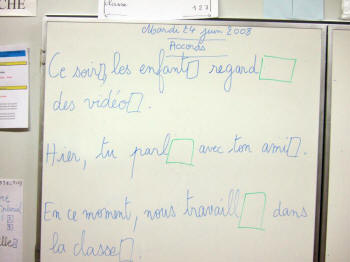 CHE
classe
127
Mardi 24 juin 2008
Accords
Ce soir, les enfant□ regard□
des vidéo□.
Hier, tu parl□ avec ton ami□.
En ce moment, nous travaill□ dans
la classe□.